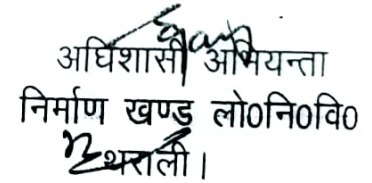 अधिशासी अभियन्ता
निर्माण खण्ड लो0नि0वि0
थराली।